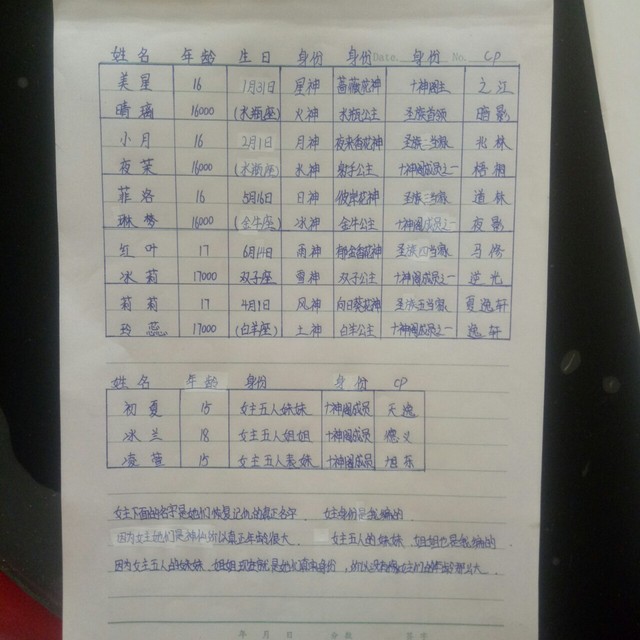 姓名 年龄 生日 身份 身份 Date. 身份 No. CP
美星 16 1月31日 星神 蔷薇花神 十神阁主 之江
晴璃 16000 (水瓶座) 火神 水瓶公主 圣族首领 暗影
小月 16 2月1日 月神 夜来香花神 圣族二当家 兆林
夜茉 16000 (水瓶座) 水神 射手公主 十神阁成员之一 梧桐
菲洛 16 5月16日 日神 彼岸花神 圣族三当家 道林
琳梦 16000 (金牛座) 冰神 金牛公主 十神阁成员之一 夜影
红叶 17 6月14日 雨神 郁金香花神 圣族四当家 马修
冰莉 17000 双子座 雪神 双子公主 十神阁成员之一 逆光
莉莉 17 4月1日 风神 向日葵花神 圣族五当家 夏逸轩
玲蕊 17000 (白羊座) 土神 白羊公主 十神阁成员之一 逸轩
姓名 年龄 身份 身份 CP
初夏 15 女主五人妹妹 十神阁成员 天逸
冰兰 18 女主五人姐姐 十神阁成员 德义
凌萱 15 女主五人表妹 十神阁成员 旭东
女主下面的名字是她们恢复记忆的真正名字 女主身份是我编的
因为女主她们是神仙所以真正年龄很大 女主五人的妹妹 姐姐也是我编的
因为女主五人的妹妹 姐姐 就是她们真正身份 所以没有像女主们的年龄那么大
年 月 日